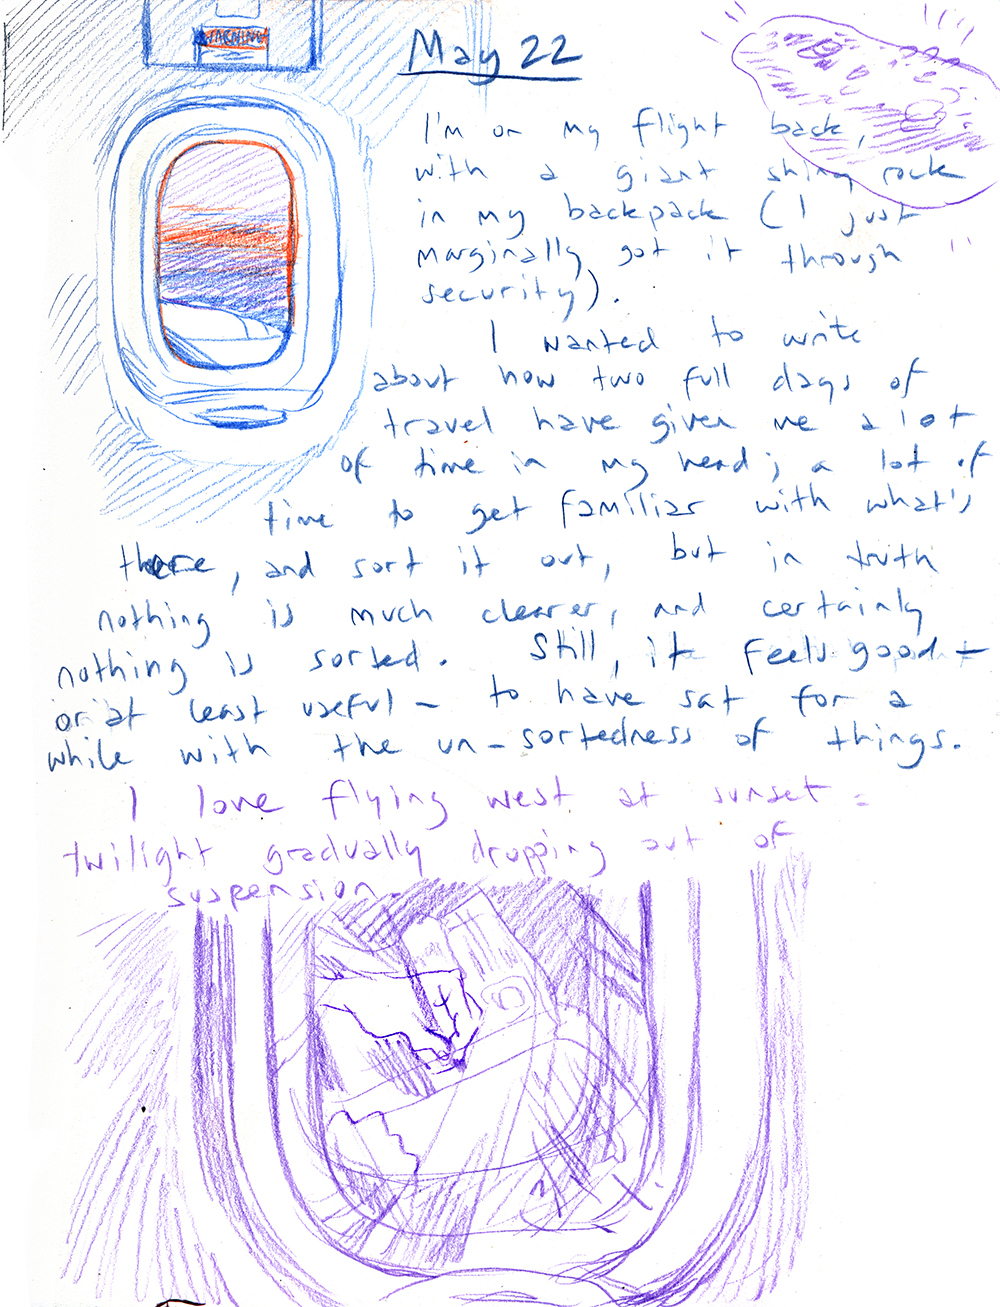 WARNING
May 22
I'm on my flight back,
with a giant shiny rock
in my backpack (I just
marginally got it through
security).
I wanted to write
about how two full days of
travel have given me a lot
of time in my head; a lot of
time to get familiar with what's
there, and sort it out, but in truth
nothing is much clearer, and certainly
nothing is sorted. Still, it feels good -
or at least useful - to have sat for a
while with the un-sortedness of things.
I love flying west at sunset =
twilight gradually dropping out of
suspension.